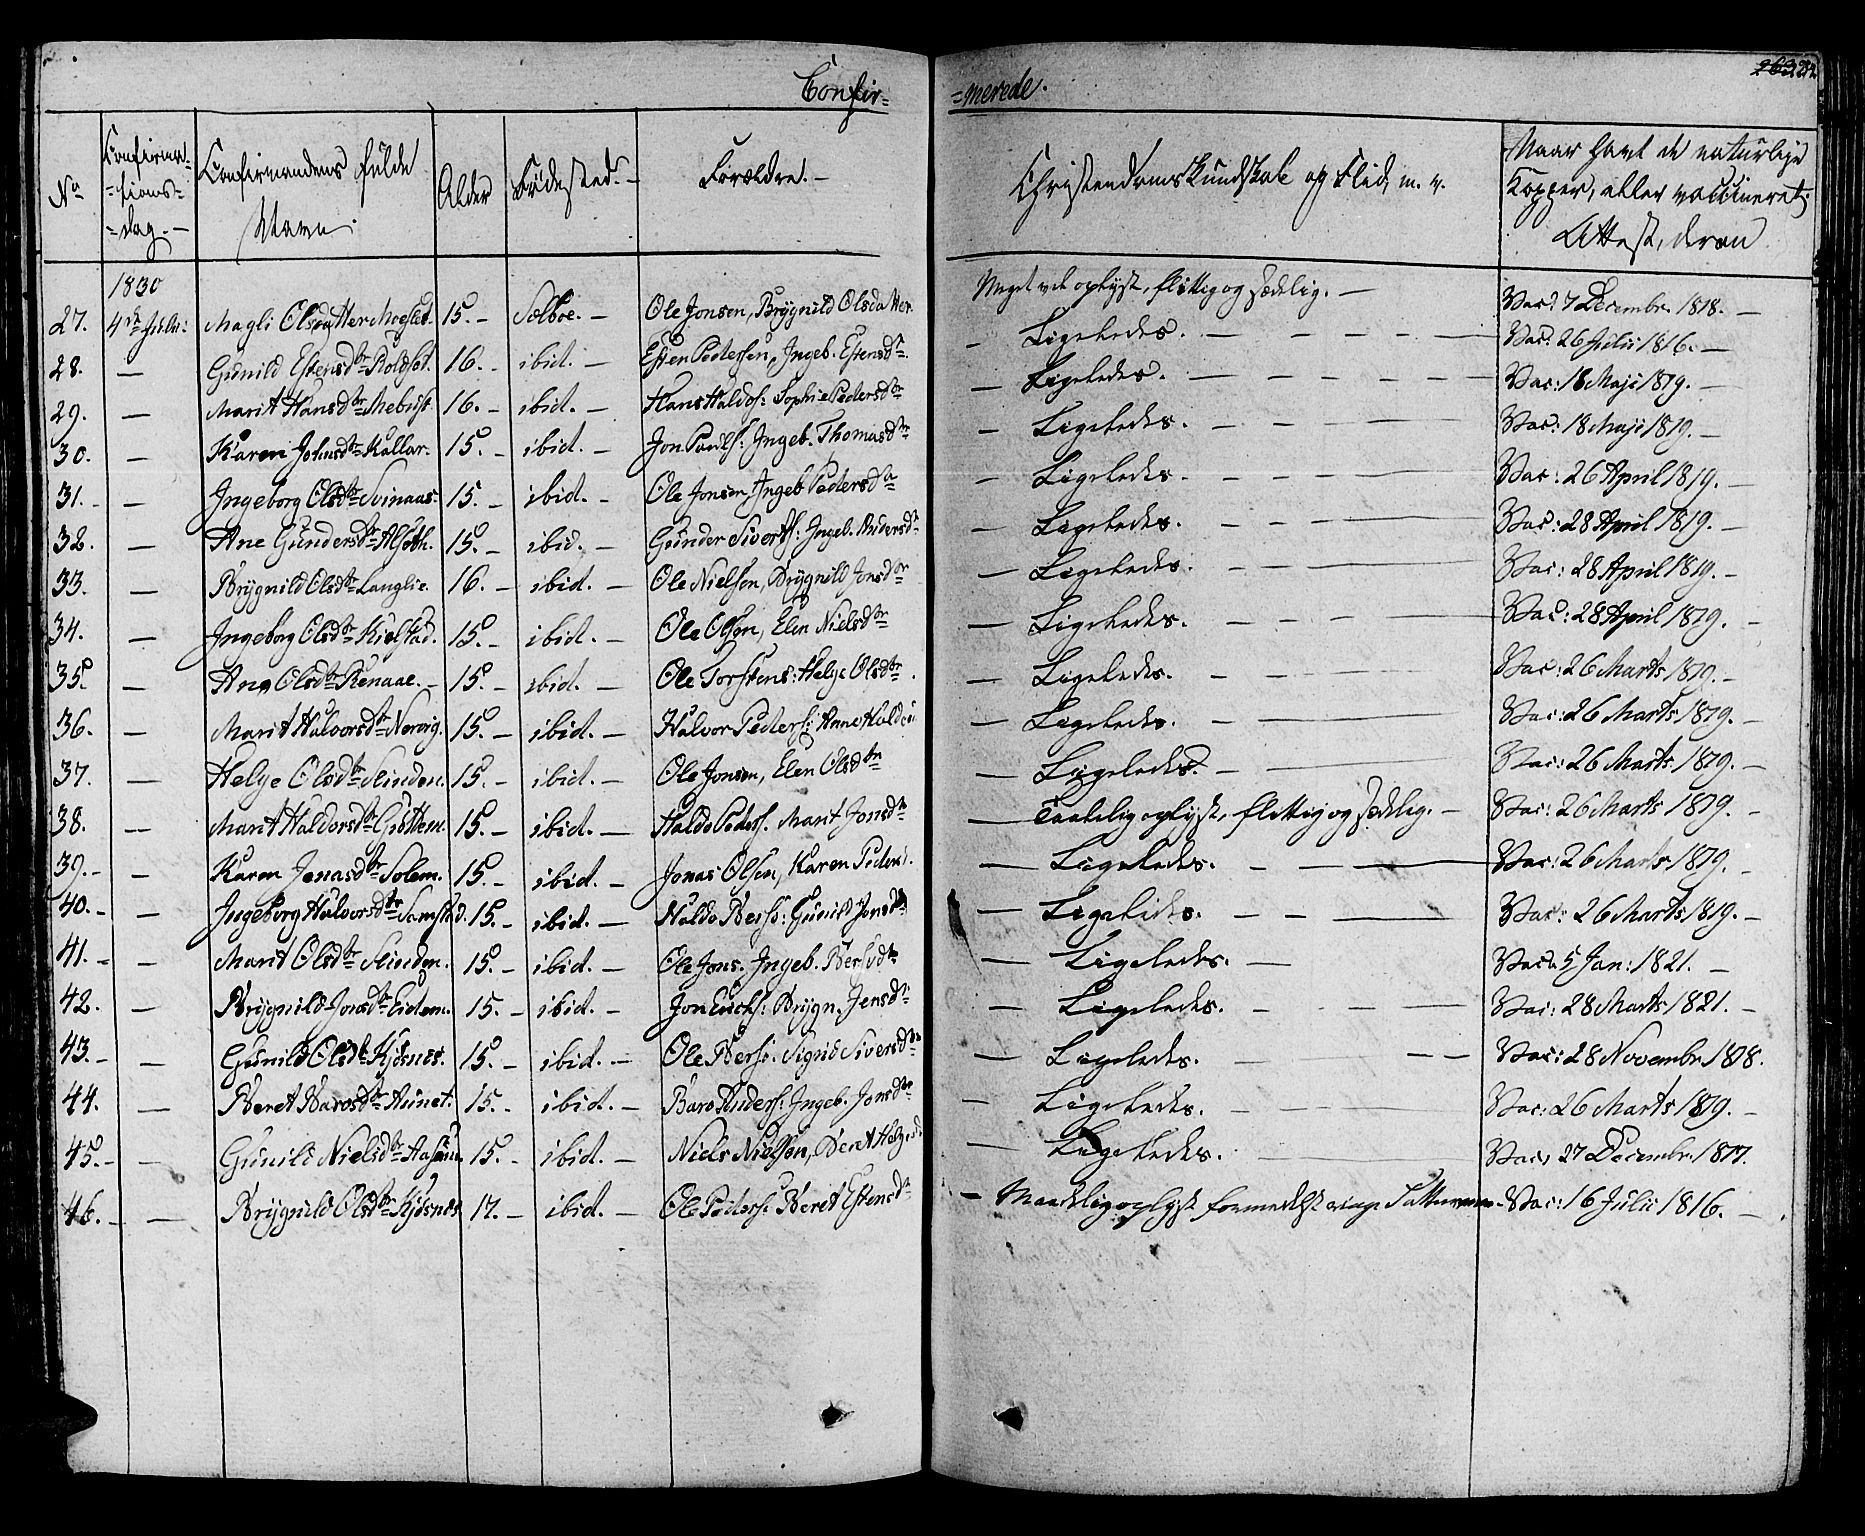 Confir=
=merede.
No
Confirma-
=tions-
=dag. -
Confirmandens fulde
Navn.
Alder
Fødested. -
Forældre. -
Christendomskundskab og Flid, m. v.
Naar havt de naturlige
Kopper, eller vaccineret.
Attest, derom
1830
27. 4de Julii: Magli Olsdatter Moeslet. 15. - Sælboe. - Ole Jonsen, Brygnild Olsdatter. Meget vel oplyst, flittig og sædelig. - Vac: 7 Decembr. 1818. -
28. - Gunild Estensdtr Roldset. 16. - ibid. - Esten Pedersen, Ingeb. Estensdtr. - Ligeledes. - Vac: 26 Julii 1816. -
29. - Marit Hansdtr Mebust. 16. - ibid. - Hans Haldos: Sophie Pedersdtr - Ligeledes. - Vac: 18 Maji 1819. -
30. - Karen Johnsdtr Kallar. 15. - ibid. - Jon Pauls: Ingeb. Thomasdtr - Ligeledes. - Vac: 18 Maji 1819. -
31. - Ingeborg Olsdtr Svinaas. 15. - ibid. - Ole Jonsen, Ingeb. Pedersdtr - Ligeledes. - Vac: 26 April 1819. -
32. - Ane Gundersdtr Alseth. 15. - ibid. - Gunder Siverts: Ingeb. Andersdtr - Ligeledes. - Vac: 28 April 1819. -
33. - Brygnild Olsdtr Langlie. 16. - ibid. - Ole Nielsen, Brygnild Jonsdtr - Ligeledes. - Vac: 28 April 1819. -
34. - Ingeborg Olsdtr Kielstad. 15. - ibid. - Ole Olsen, Elen Nielsdtr - Ligeledes. - Vac: 28 April 1819. -
35. - Ane Olsdtr Renaae. - 15. - ibid. - Ole Torstens: Helge Olsdtr. - Ligeledes. - Vac: 26 Marts 1819. -
36. - Marit Halvorsdtr Norvig. 15. - ibid. - Halvor Peders: Anne - Ligeledes. - Vac: 26 Marts 1819. -
37. - Helge Olsdtr Slinden. 15. - ibid. - Ole Jonsen, Elen Olsdtr - Ligeledes. - Vac: 26 Marts 1819. -
38. - Marit Haldorsdtr Grøttem. 15. - ibid. - Haldo Peders. Marit Jonsdtr - Taalelig oplyst, flittig og sædelig. - Vac: 26 Marts 1819. -
39. - Karen Jonasdtr Solem. 15. - ibid. - Jonas Olsen, Karen Peders. - Ligeledes. - Vac: 26 Marts 1819. -
40. - Ingeborg Halvorsdtr Samstad. 15. - ibid. - Haldo Bers: Gunild Jonsdtr - Ligeledes. - Vac: 26 Marts 1819. -
41. - Marit Olsdtr Slinden. 15. - ibid. - Ole Jons. Ingeb. Bersvdtr - Ligeledes. - Vac: 5 Jan: 1821. -
42. - Brygnild Jonsdtr Eidem. 15. - ibid. - Jon Erichs: Brygn. Jensdtr - Ligeledes. - Vac: 28 Marts 1821. -
43. - Gunild Olsdtr Kjøsnes. 15. - ibid. - Ole Bers: Sigrid Siversdtr - Ligeledes. - Vac: 28 Novembr. 1818.
44. - Beret Barosdtr Aunet. 15. - ibid. - Baro Anders: Ingeb. Jonsdtr - Ligeledes. - Vac: 26 Marts 1819. -
45. - Gunild Nielsdtr 15. - ibid. - Niels Nielsen, Beret - Ligeledes. - Vac: 27 Decembr. 1817.
46. - Brygnild Olsdtr Kjøsnes 17. - ibid. - Ole Peders. Beret Estensdtr - Maadelig oplyst formedelst ringe - Vac: 16 Julii 1816. -